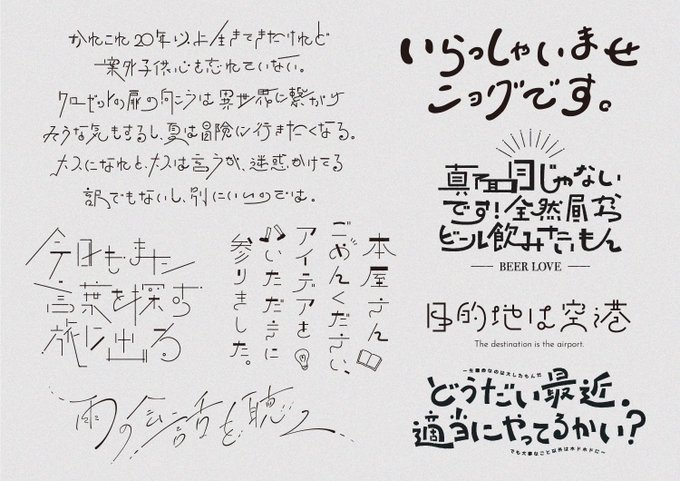 かれこれ20年以上生きてきたけれど
案外子供心を忘れていない。
クローゼットの扉の向こうは異世界に繋がり
そうな気もするし、夏は冒険に行きたくなる。
大人になれと、大人は言うが、迷惑かけてる
訳でもないし、別にいいのでは。
今日もまた
言葉を探す
旅に出る
本屋さん
ごめんください、
アイデアを
いただきに
参りました。
雨の会話を聴く
いらっしゃいませ
ショグです。
真面目じゃない
です!全然昼から
ビール飲みたいもん
BEER LOVE
目的地は空港
The destination is the airport.
〜生憎赤なのは大したもんだ
どうだい最近。
適当にやってるかい?
でも大事なこと以外はホドホドに〜